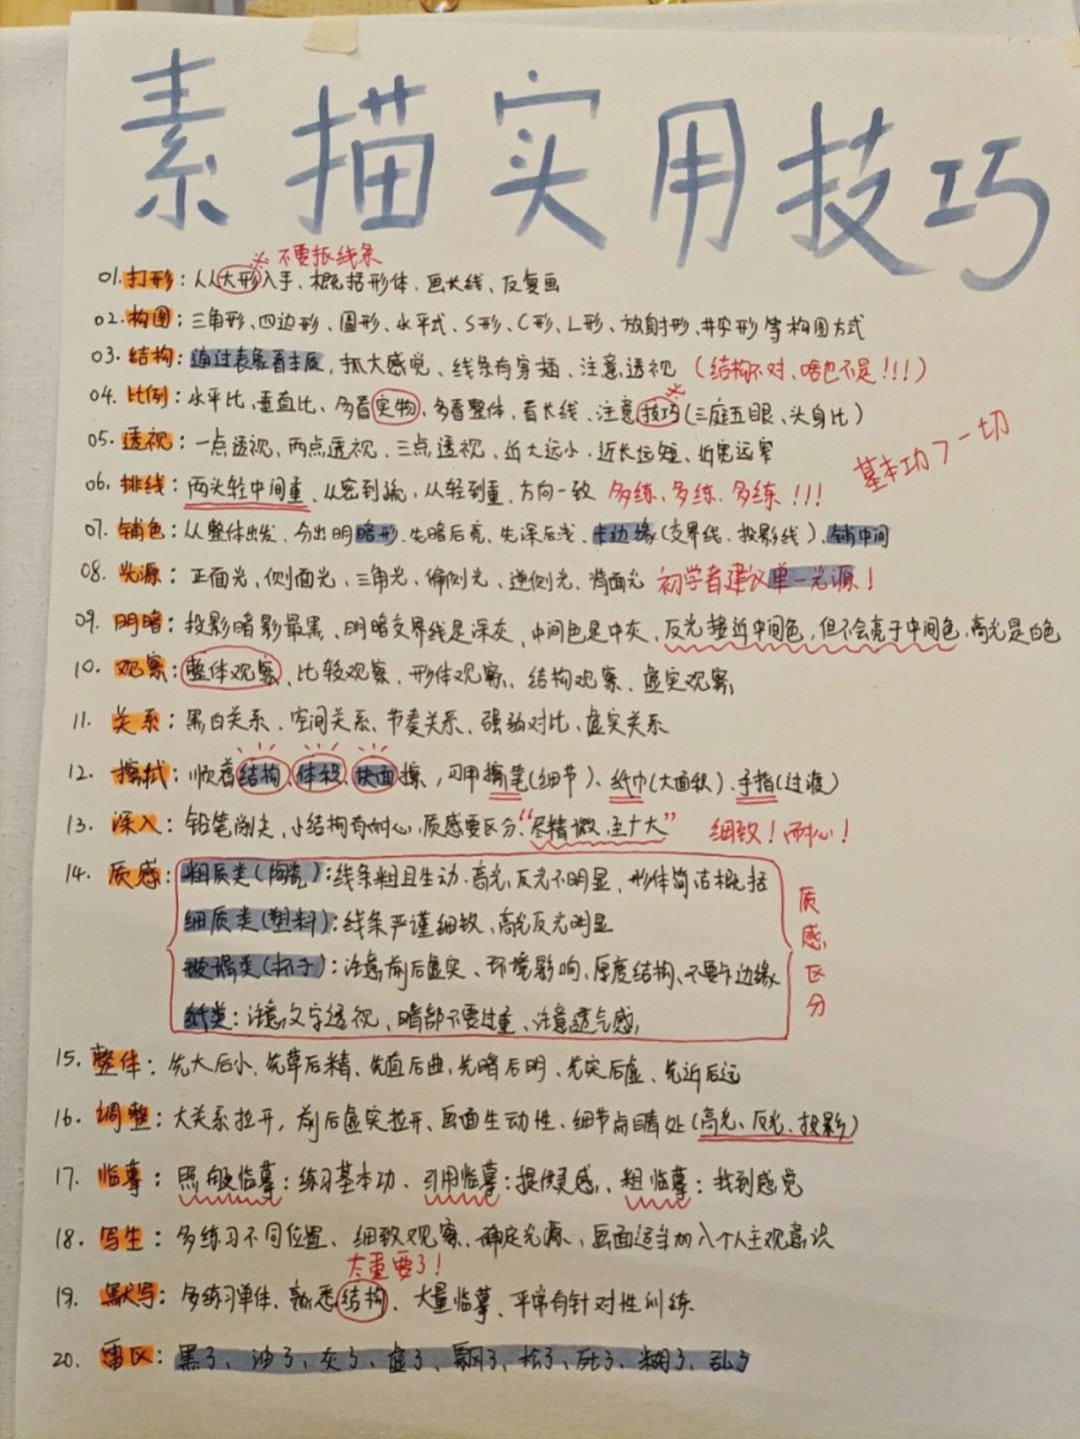 素描实用技巧
※不要抠线条
01.打形：从大形入手、概括形体、画长线、反复画
02.构图：三角形、四边形、圆形、水平式、S形、C形、L形、放射形、井字形等构图方式
03.结构：通过表象看本质，抓大感觉、线条有穿插、注意透视（结构不对、啥也不是!!!）
04.比例：水平比、垂直比、多看实物、多看整体、看长线、注意技巧(三庭五眼、头身比)
05.透视：一点透视、两点透视、三点透视、近大远小、近长远短、近宽远窄
基本功了一切
06.排线：两头轻中间重、从密到疏、从轻到重、方向一致 多练、多练、多练!!!
07.铺色：从整体出发、分出明暗形、先暗后亮、先深后浅、卡边缘(交界线、投影线)、铺中间
08.光源：正面光、侧面光、三角光、偏侧光、逆侧光、背面光 初学者建议单一光源！
09.明暗：投影暗影最黑、明暗交界线是深灰、中间色是中灰、反光接近中间色，但不会亮于中间色、高光是白色
10.观察：整体观察、比较观察、形体观察、结构观察、虚实观察
11.关系：黑白关系、空间关系、节奏关系、强弱对比、虚实关系
12.擦拭：顺着结构、体积、块面擦，可用擦笔(细节)、纸巾(大面积)、手指(过渡)
13.深入：铅笔削尖、小结构有耐心、质感要区分“尽精微、至广大” 细致！耐心！
14.质感：粗质类(陶瓷)：线条粗且生动、高光、反光不明显、形体简洁概括
细质类(塑料)：线条严谨细致、高光反光明显
玻璃类(杯子)：注意前后虚实、环境影响、厚度结构、不要卡边缘
纸类：注意文字透视、暗部不要过重、注意透气感
质感区分
15.整体：先大后小、先草后精、先直后曲、先暗后明、先实后虚、先近后远
16.调整：大关系拉开，前后虚实拉开、画面生动性、细节点睛处(高光、反光、投影)
17.临摹：照般临摹：练习基本功、引用临摹：提供灵感、粗临摹：找到感觉
18.写生：多练习不同位置、细致观察、确定光源、画面适当加入个人主观意识
太重要了！
19.默写：多练习单体、熟悉结构、大量临摹、平常有针对性训练
20.雷区：黑了、油了、灰了、虚了、飘了、松了、死了、糊了、乱了